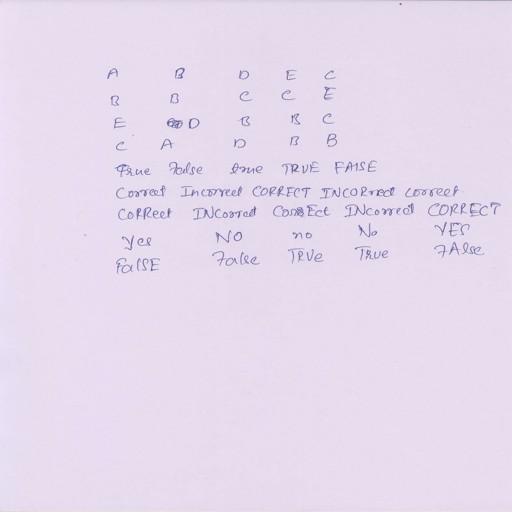 A B D E C
B B C C E
E D B B C
C A D B B
True False true TRUE FAlSE
Correct Incorrect CORRECT INCORrect correct
CoRRect INCorrect CorrEct INCorrect CORRECT
Yes NO no No YES
FalSE False TRVe True FAlse